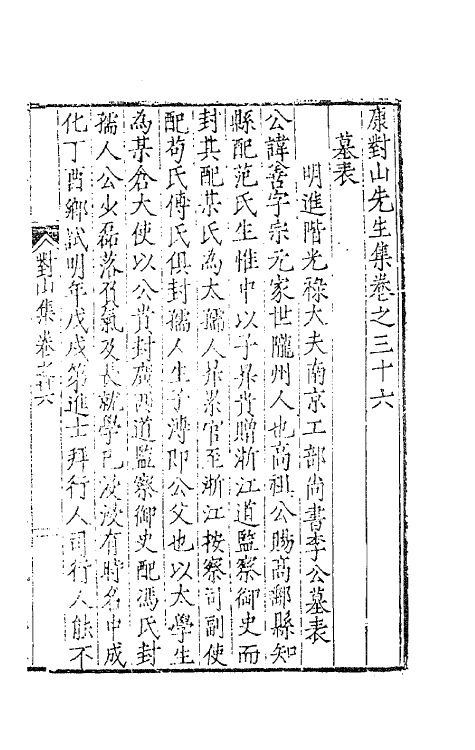 康對山先生集卷之三十六
墓表
明進階光祿大夫南京工部尚書李公墓表
公諱善字宗元家世隴州人也高祖公賜高郵縣知
縣配范氏生惟中以子鼎貴贈浙江道監察御史而
封其配某氏為太孺人鼎累官至浙江按察司副使
配苟氏傅氏俱封孺人生子溥即公父也以太學生
為某倉大使以公貴封廣西道監察御史配馮氏封
孺人公少磊落負氣及長就學已汲汲有時名中成
化丁酉鄉試明年戊戌第進士拜行人司行人能不
對山集卷之三十六
一